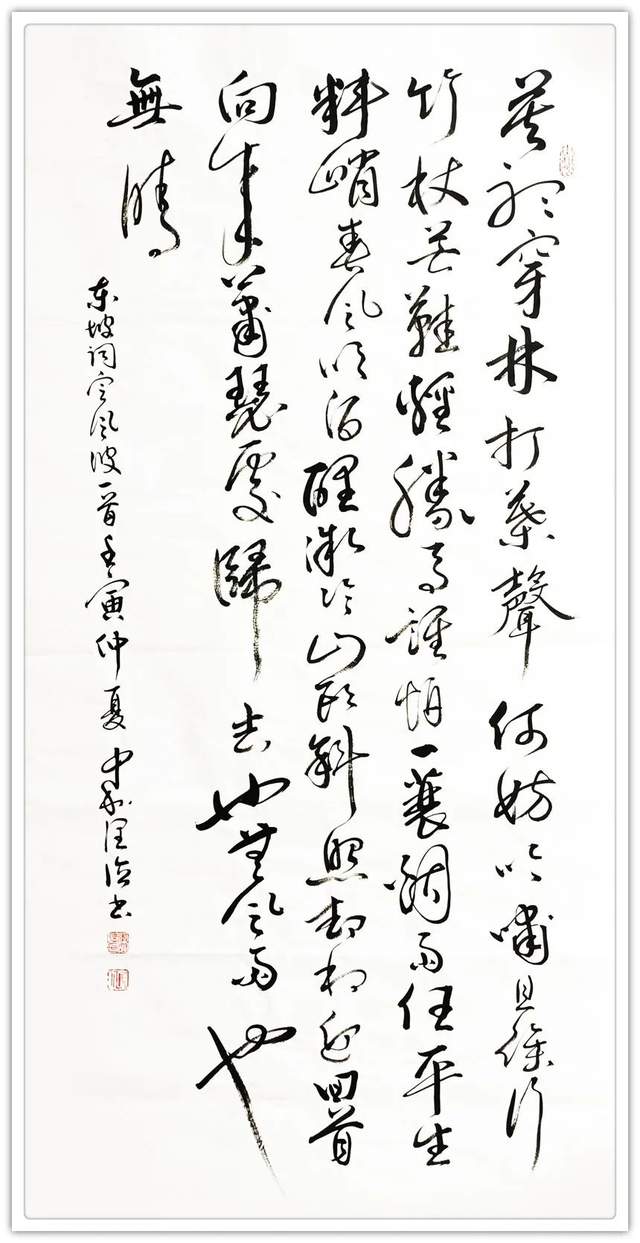 莫聽穿林打葉聲何妨吟嘯且徐行
竹杖芒鞋輕勝馬誰怕一蓑烟雨任平生
料峭春風吹酒醒微冷山頭斜照却相迎回首
向來蕭瑟處歸去也無風雨也
無晴
东坡词定风波一首壬寅仲夏书